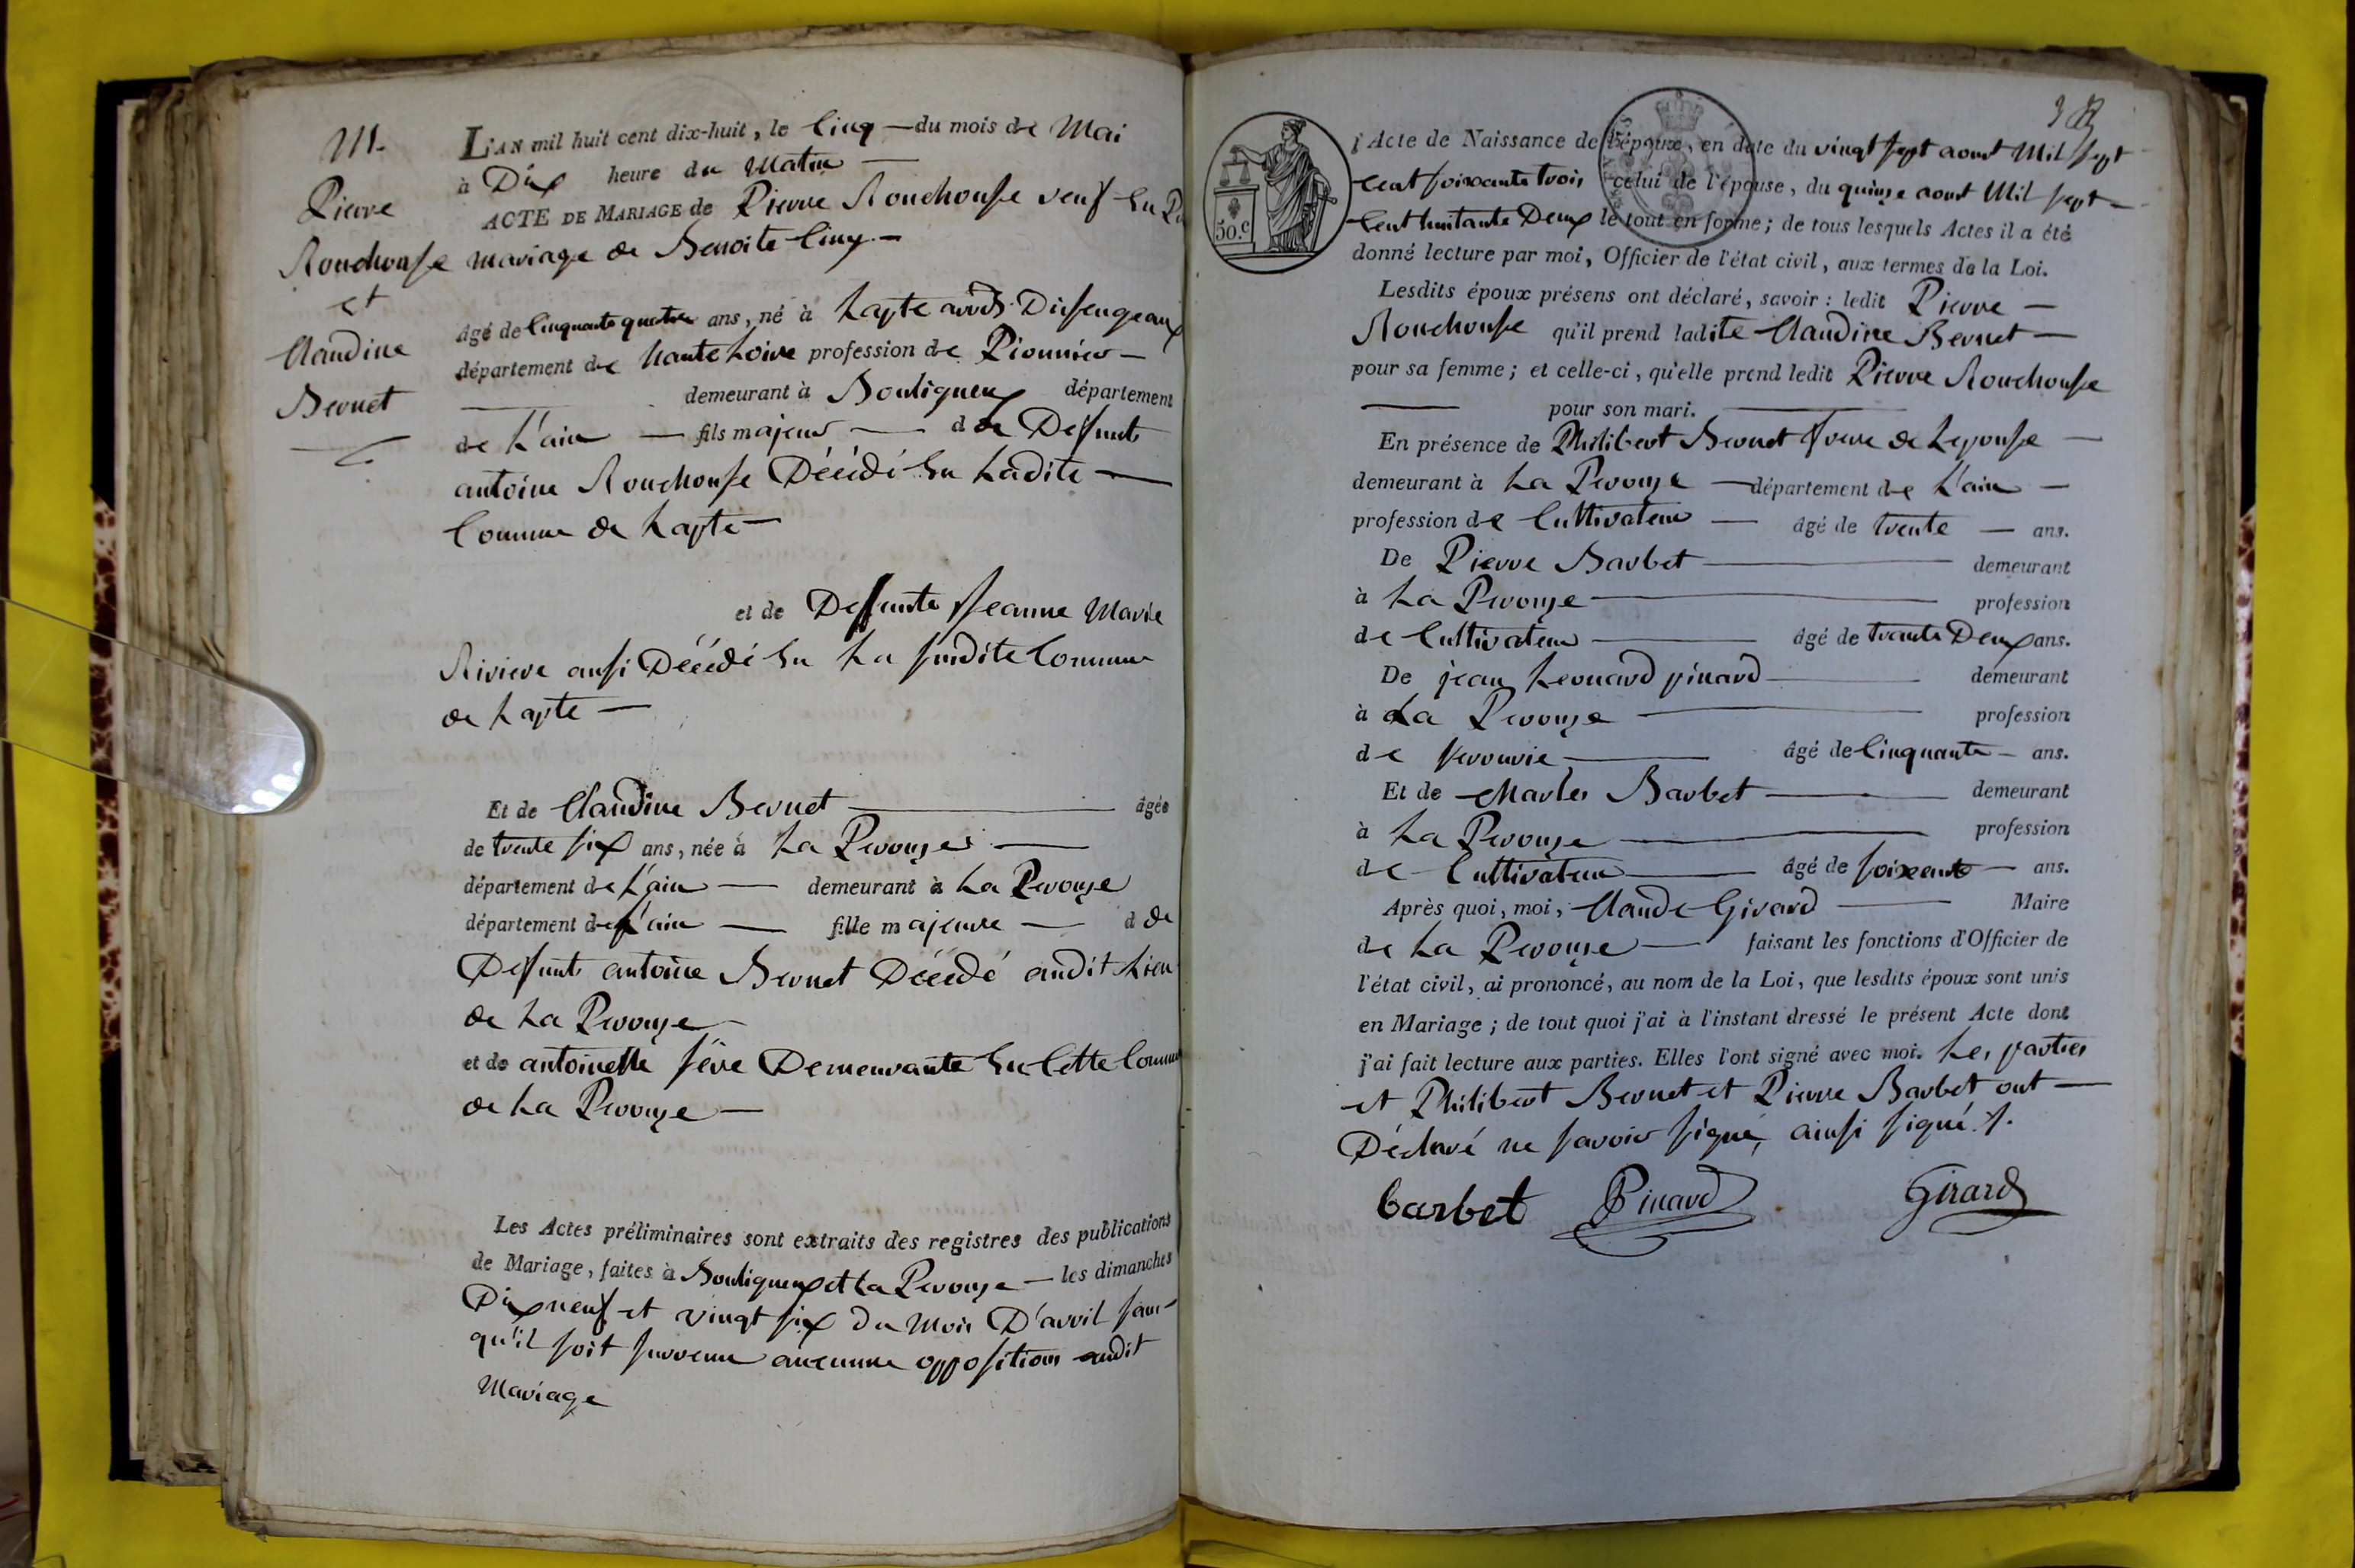 M.
Pierre
Rouchouse
et
Claudine
Bernet
L'AN mil huit cent dix-huit, le Cinq — du mois de Mai
à Dix heure du Matin —
ACTE DE MARIAGE de Pierre Rouchouse veuf En
mariage de Benoite Cinq —
âgé de Cinquante quatre ans, né à Lapte arrds Dissengeaux
département de haute Loire profession de Pionnier —
demeurant à Bouligneux département
de L'ain — fils majeur — d de Deffunt
antoine Rouchouse Décédé En Ladite —
Commune de Lapte —
et de Deffunte Jeanne Marie
Riviere aussi Décédé En La susdite Commune
de Lapte —
Et de Claudine Bernet — âgée
de trente six ans, née à La Perouze —
département de L'ain — demeurant à La Perouze
département de L'ain — fille majeure — d de
Deffunt antoine Bernet Décédé audit Lieu
de La Perouze —
et de antoinette séve Demeurante En Cette Commune
de La Perouze —
Les Actes préliminaires sont extraits des registres des publications
de Mariage, faites à Bouligneux et La Perouze — les dimanches
Dix neuf et vingt six du mois D'avril sans
qu'il soit survenue aucunne opposition audit
Mariage
l'Acte de Naissance de l'époux, en date du vingt sept aout Mil sept
Cent soixante trois celui de l'épouse, du quinze aout Mil sept —
Cent huitante Deux le tout en forme; de tous lesquels Actes il a été
donné lecture par moi, Officier de l'état civil, aux termes de la Loi.
50.c
Lesdits époux présens ont déclaré, savoir : ledit Pierre —
Rouchouse qu'il prend ladite Claudine Bernet —
pour sa femme; et celle-ci, qu'elle prend ledit Pierre Rouchouse
— pour son mari. —
En présence de Philibert Bernet frere de Lepouse —
demeurant à La Perouze — département de L'ain —
profession de Cultivateur — âgé de trente — ans.
De Pierre Barbet — demeurant
à La Perouze — profession
de Cultivateur — âgé de trente Deux ans.
De jean Leonard pinard — demeurant
à La Perouze — profession
de — âgé de Cinquante — ans.
Et de Charles Barbet — demeurant
à La Perouze — profession
de Cultivateur — âgé de soixante — ans.
Après quoi, moi, Claude Girard — Maire
de La Perouze — faisant les fonctions d'Officier de
l'état civil, ai prononcé, au nom de la Loi, que lesdits époux sont unis
en Mariage; de tout quoi j'ai à l'instant dressé le présent Acte dont
j'ai fait lecture aux parties. Elles l'ont signé avec moi. Les parties
et Philibert Bernet et Pierre Barbet ont —
Déclaré ne savoir signé, ainsi signé
barbet Pinard Girard